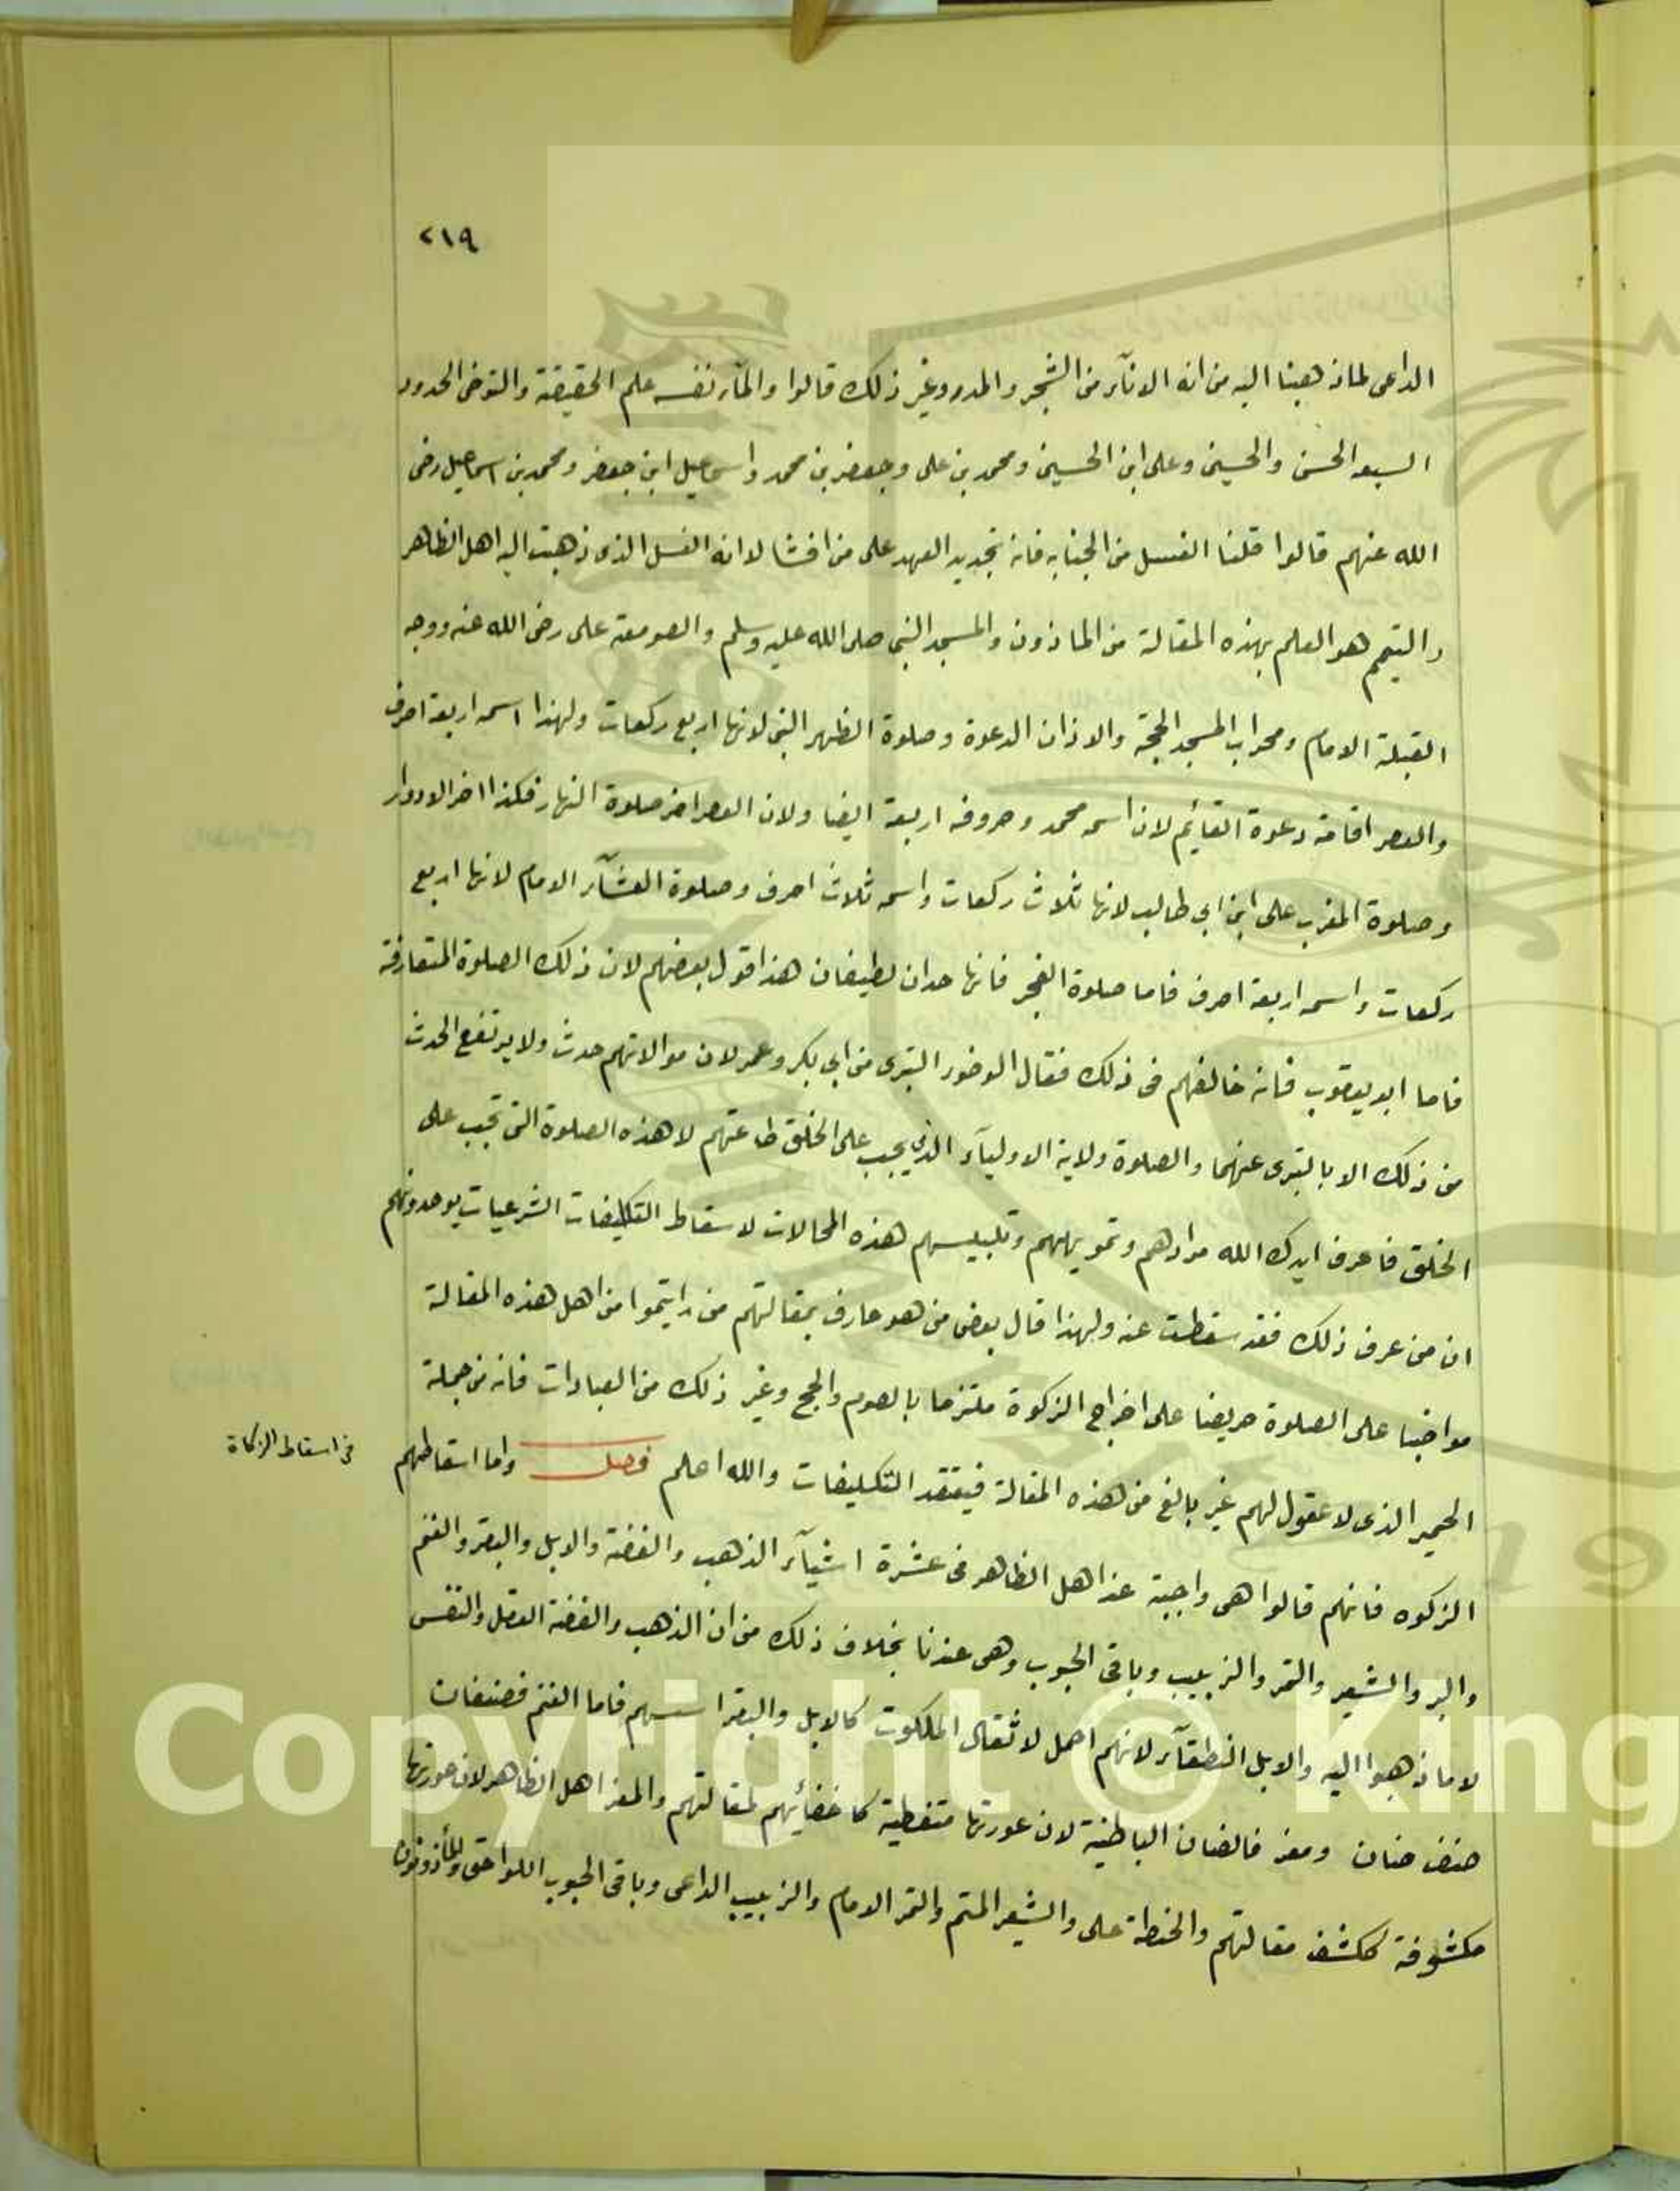 ٢١٩
الداعى لماذهبنا اليه من انه الاناء من الشجر والمدر وغير ذلك قالوا والماء نفسه علم الحقيقة والتوضى الحدود
السبعه الحسن والحسين وعلى ابن الحسين ومحمد بن على وجعفر بن محمد واسماعيل ابن جعفر ومحمد بن اسماعيل رضى
الله عنهم قالوا قلنا الغسل من الجنابه فانه تجديد العهد على من افشا لا انه الغسل الذى ذهبت اليه اهل الظاهر
والتيمم هو العلم بهذه المقالة من الماذون والمسجد النبى صلى الله عليه وسلم والصومعة على رضى الله عنه ووجه
القبلة الامام ومحراب المسجد الحجة والاذان الدعوة وصلوة الظهر النبى لانها اربع ركعات ولهذا اسمه اربعة احرف
والعصر اقامة دعوة القائم لان اسمه محمد وحروفه اربعة ايضا ولان العصر اخر صلوة النهار فكذا اخر الادوار
وصلوة المغرب على ابن ابى طالب لانها ثلاث ركعات واسمه ثلاث احرف وصلوة العشآء الامام لانها اربع
ركعات واسمه اربعة احرف فاما صلوة الفجر فانها حدان لطيفان هذا قول بعضهم لان ذلك الصلوة المتعارفة
فاما ابو يعقوب فانه خالفهم فى ذلك فقال الوضوء التبرى من ابى بكر وعمر لان موالاتهم حدث ولا يرتفع الحدث
من ذلك الا بالتبرى عنهما والصلوة ولاية الاوليآء الذى يجب على الخلق طاعتهم لا هذه الصلوة التى تجب على
الخلق فاعرف ايدك الله مرادهم وتمويههم وتلبيسهم هذه المحالات لاسقاط التكليفات الشرعيات يوهدونهم
ان من عرف ذلك فقد سقطت عنه ولهذا قال بعض من هو عارف بمقالتهم من رايتموا من اهل هذه المقالة
مواضبا على الصلوة حريضا على اخراج الزكوة ملتزما بالصوم والحج وغير ذلك من العبادات فانه من جملة
الحمير الذى لا عقول لهم غير بالغ من هذه المقالة فيعتقد التكليفات والله اعلم فصل واما اسقاطهم
فى اسقاط الزكاة
الزكوه فانهم قالوا هى واجبة عند اهل الظاهر فى عشرة اشيآء الذهب والفضة والابل والبقر والغنم
والبر والشعير والتمر والزبيب وباقى الحبوب وهى عندنا بخلاف ذلك من ان الذهب والفضة العقل والنفس
لا ما ذهبوا اليه والابل النطقآء لانهم احمل لاثقال الملكوت كالابل والبقر اسسهم فاما الغنم فصنفان
صنف ضان ومعز فالضان الباطنية لان عورتها متغطية كاخفائهم لمقالتهم والمعز اهل الظاهر لان عورتها
مكشوفة ككشف مقالتهم والحنطة على والشعير المتم والتمر الامام والزبيب الداعى وباقى الحبوب اللواحق والمأذونون
Copyright © King